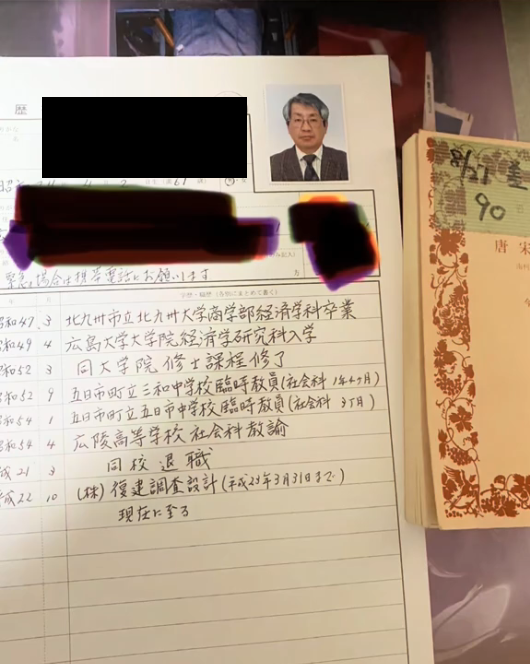 緊急の場合は携帯電話にお願いします
学歴・職歴(各別にまとめて書く)
昭和47 3 北九州市立北九州大学商学部経済学科卒業
昭和49 4 広島大学大学院経済学研究科入学
昭和52 3 同大学院修士課程修了
昭和52 9 五日市町立三和中学校臨時教員(社会科 1年4ヶ月)
昭和54 1 五日市町立五日市中学校臨時教員(社会科 3ヶ月)
昭和54 4 広陵高等学校社会科教諭
平成21 3 同校退職
平成22 10 (株)復建調査設計(平成23年3月31日まで)
現在に至る
8/27
90
唐宋